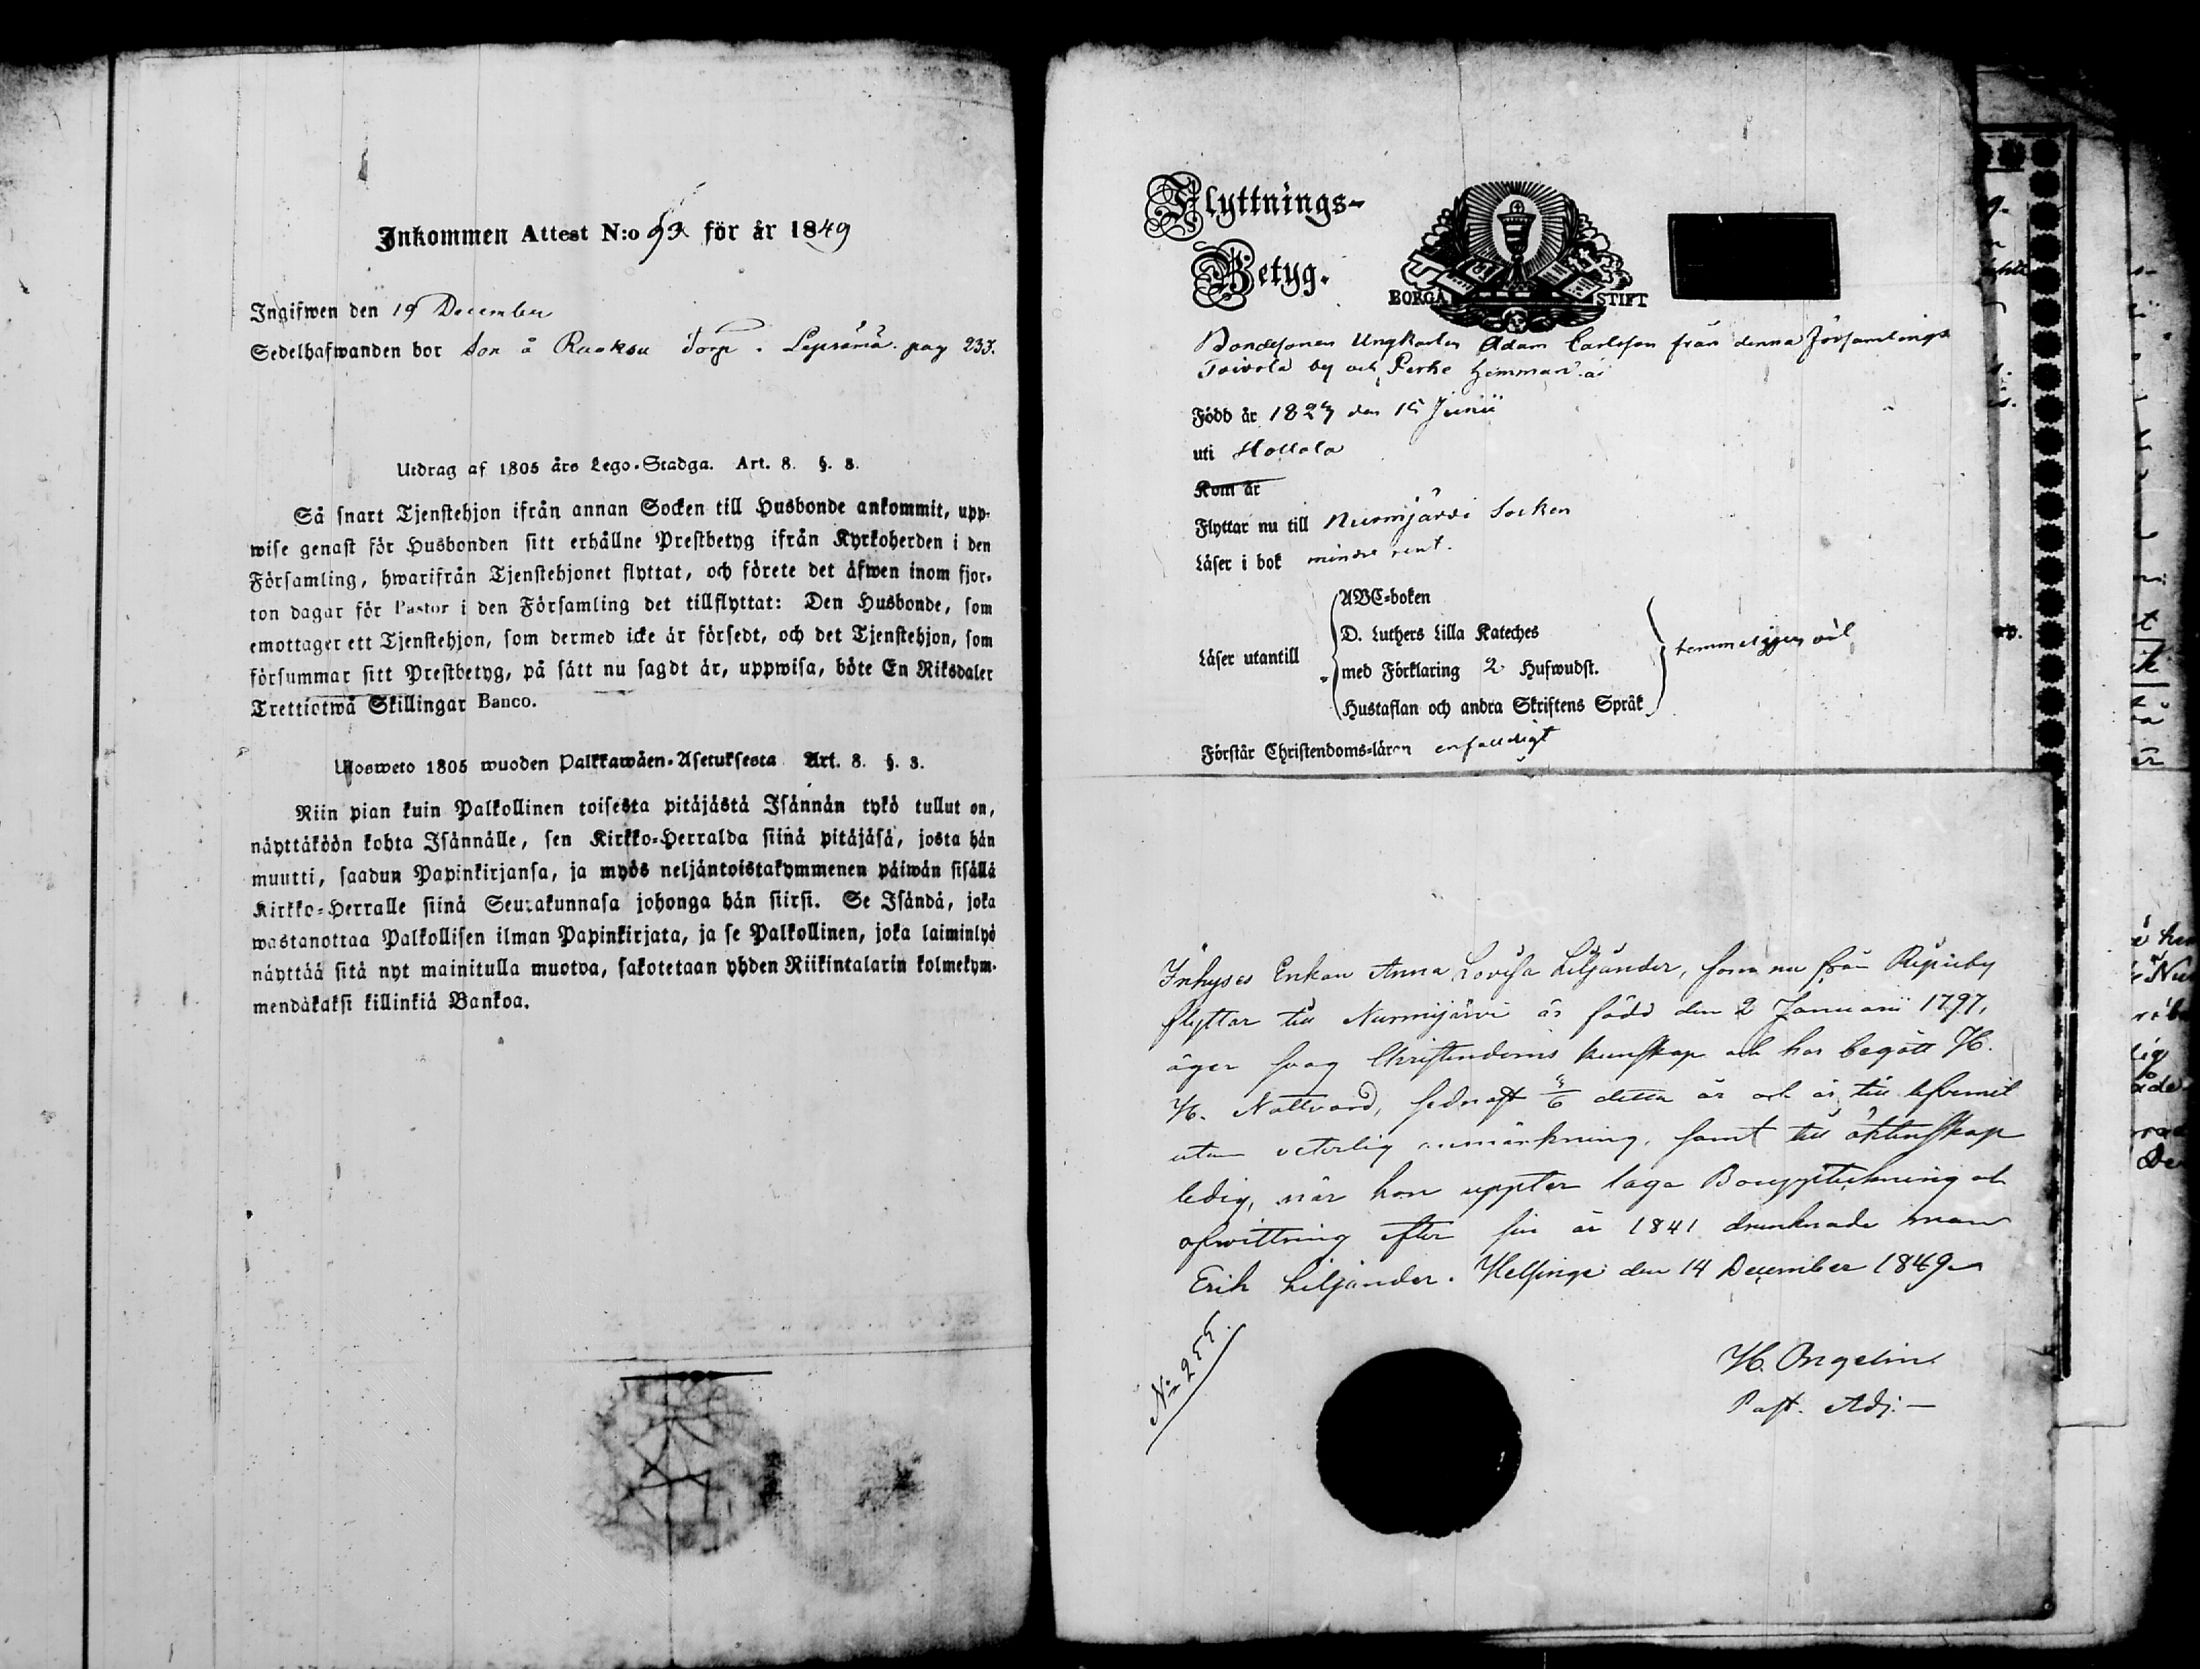 Inkommen Attest N:o 93 för år 1849
Ingifwen den 19 December
Sedelhafwanden bor som å Raaksu Torp. Leprämä. pag 233.
Utdrag af 1805 års Lego-Stadga. Art. 8. §. 8.
Så snart Tjenstehjon ifrån annan Socken till Husbonde ankommit, upp-
wise genast för Husbonden sitt erhållne Prestbetyg ifrån Kyrkoherden i den
Församling, hwarifrån Tjenstehjonet flyttat, och förete det äfwen inom fjor-
ton dagar för Pastor i den Församling det tillflyttat: Den Husbonde, som
emottager ett Tjenstehjon, som dermed icke är försedt, och det Tjenstehjon, som
försummar sitt Prestbetyg, på sätt nu sagdt är, uppwisa, böte En Riksdaler
Trettiotwå Skillingar Banco.
Ulosweto 1805 wuoden Palkkawäen-Asetuksesta Art. 8. §. 8.
Niin pian kuin Palkollinen toisesta pitäjästä Isännän tykö tullut on,
näyttäköön kohta Isännälle, sen Kirkko-Herralda siinä pitäjäsä, josta hän
muutti, saadun Papinkirjansa, ja myös neljäntoistakymmenen päiwän sisällä
Kirkko-Herralle siinä Seurakunnasa johonga hän siirsi. Se Isändä, joka
wastanottaa Palkollisen ilman Papinkirjata, ja se Palkollinen, joka laiminlyö
näyttää sitä nyt mainitulla muotoa, sakotetaan yhden Riikintalarin kolmekym-
mendäkaksi killinkiä Bankoa.
Flyttnings-
Betyg.
BORGÅ STIFT
Bondesonen Ungkarlen Adam Carlsson från denna Församlings
Toivola by och Perhe hemman är
Född år 1827 den 15 Junii
uti Hollola
Kom år
Flyttar nu till Nurmijärvi Socken
Läser i bok mindre rent.
Läser utantill
ABC-boken
D. Luthers Lilla Kateches
med Förklaring 2 Hufwudst.
Hustaflan och andra Skriftens Språk
temmeligen väl
Förstår Christendoms-läran enfaldigt
Inhyses Enkan Anna Lovisa Liljander, som nu från Ripuby
flyttar till Nurmijärvi är född den 2 Januarii 1797,
äger svag Christendoms kunskap och har begått H.
H. Nattvard, sednast detta år och är till lefvernet
utan veterlig anmärkning, samt till äktenskap
ledig, när hon uppter laga Bouppteckning och
afwittring efter sin år 1841 drunknade man
Erik Liljander. Helsinge den 14 December 1849
No 255.
H. Ongelin
Past. Adj.